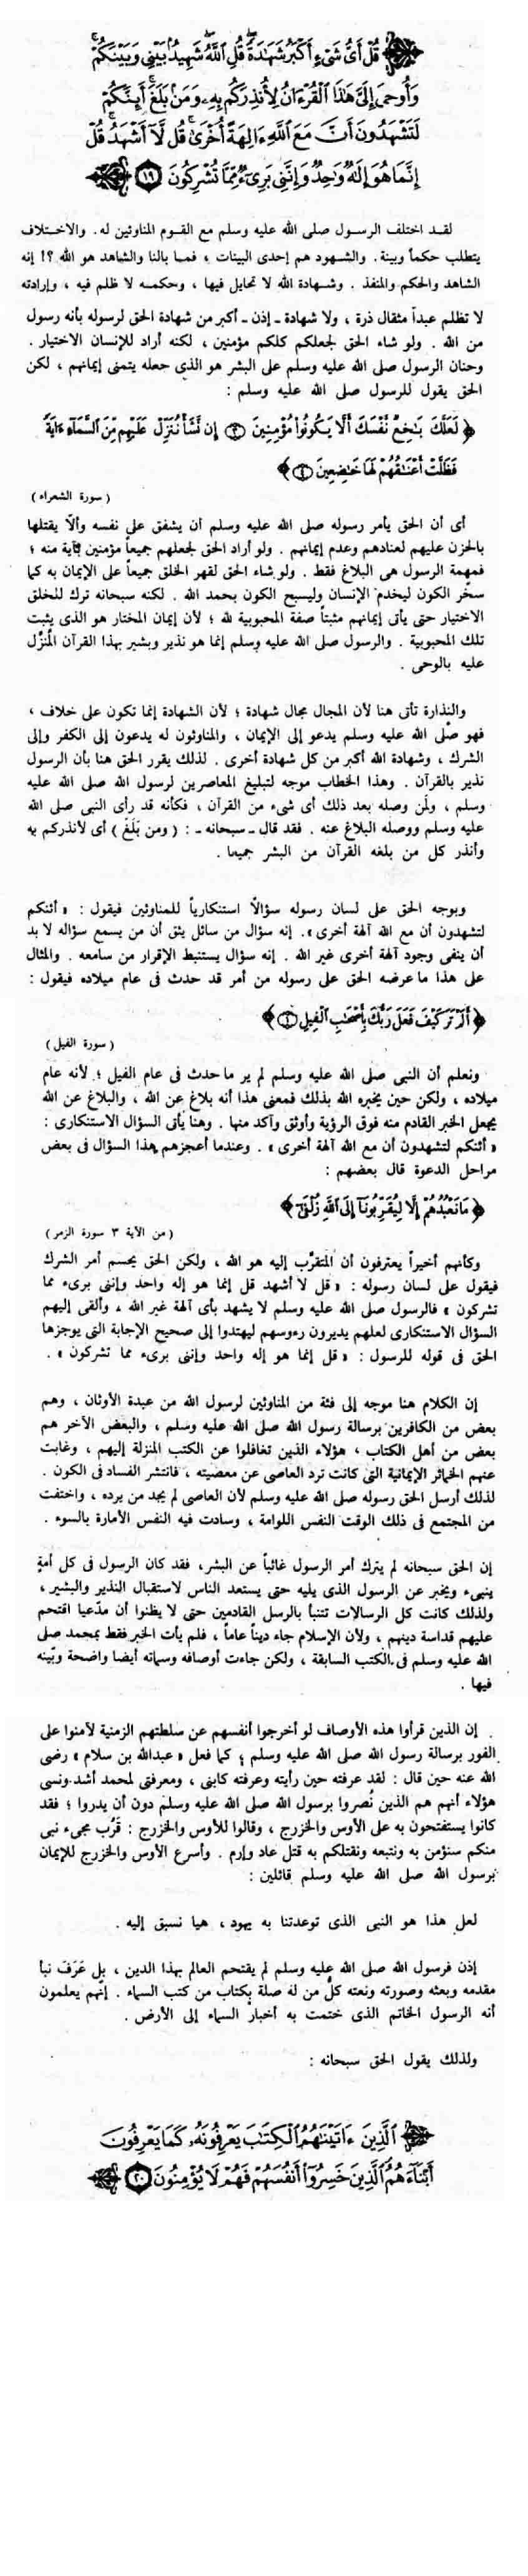 قُلْ أَيُّ شَيْءٍ أَكْبَرُ شَهَٰدَةً قُلِ ٱللَّهُ شَهِيدٌۢ بَيْنِي وَبَيْنَكُمْ
وَأُوحِيَ إِلَيَّ هَٰذَا ٱلْقُرْءَانُ لِأُنذِرَكُم بِهِۦ وَمَنۢ بَلَغَ أَئِنَّكُمْ
لَتَشْهَدُونَ أَنَّ مَعَ ٱللَّهِ ءَالِهَةً أُخْرَىٰ قُل لَّآ أَشْهَدُ قُلْ
إِنَّمَا هُوَ إِلَٰهٌ وَٰحِدٌ وَإِنَّنِي بَرِيٓءٌ مِّمَّا تُشْرِكُونَ ١٩
لقد اختلف الرسول صلى الله عليه وسلم مع القوم المناوئين له . والاختلاف
يتطلب حكماً وبينة . والشهود هم إحدى البينات ، فما بالنا والشاهد هو الله ؟! إنه
الشاهد والحكم والمنفذ . وشهادة الله لا تحايل فيها ، وحكمه لا ظلم فيه ، وإرادته
لا تظلم عبداً مثقال ذرة ، ولا شهادة ـ إذن ـ أكبر من شهادة الحق لرسوله بأنه رسول
من الله . ولو شاء الحق لجعلكم كلكم مؤمنين ، لكنه أراد للإنسان الاختيار .
وحنان الرسول صلى الله عليه وسلم على البشر هو الذى جعله يتمنى إيمانهم ، لكن
الحق يقول للرسول صلى الله عليه وسلم :
﴿ لَعَلَّكَ بَٰخِعٌ نَّفْسَكَ أَلَّا يَكُونُوا۟ مُؤْمِنِينَ ٣ إِن نَّشَأْ نُنَزِّلْ عَلَيْهِم مِّنَ ٱلسَّمَآءِ ءَايَةً
فَظَلَّتْ أَعْنَٰقُهُمْ لَهَا خَٰضِعِينَ ٤ ﴾
( سورة الشعراء )
أى أن الحق يأمر رسوله صلى الله عليه وسلم أن يشفق على نفسه وألّا يقتلها
بالحزن عليهم لعنادهم وعدم إيمانهم . ولو أراد الحق لجعلهم جميعاً مؤمنين بآية منه ؛
فمهمة الرسول هى البلاغ فقط . ولو شاء الحق لقهر الخلق جميعاً على الإيمان به كما
سخّر الكون ليخدم الإنسان وليسبح الكون بحمد الله . لكنه سبحانه ترك للخلق
الاختيار حتى يأتى إيمانهم مثبتاً صفة المحبوبية لله ؛ لأن إيمان المختار هو الذى يثبت
تلك المحبوبية . والرسول صلى الله عليه وسلم إنما هو نذير وبشير بهذا القرآن المُنزّل
عليه بالوحى .
والنذارة تأتى هنا لأن المجال مجال شهادة ؛ لأن الشهادة إنما تكون على خلاف ،
فهو صلّى الله عليه وسلم يدعو إلى الإيمان ، والمناوئون له يدعون إلى الكفر وإلى
الشرك ، وشهادة الله أكبر من كل شهادة أخرى . لذلك يقرر الحق هنا بأن الرسول
نذير بالقرآن . وهذا الخطاب موجه لتبليغ المعاصرين لرسول الله صلى الله عليه
وسلم ، ولمن وصله بعد ذلك أى شىء من القرآن ، فكأنه قد رأى النبى صلى الله
عليه وسلم ووصله البلاغ عنه . فقد قال ـ سبحانه ـ : ( ومن بَلَغَ ) أى لأنذركم به
وأنذر كل من بلغه القرآن من البشر جميعا .
ويوجه الحق على لسان رسوله سؤالًا استنكارياً للمناوئين فيقول : « أئنكم
لتشهدون أن مع الله آلهة أخرى ». إنه سؤال من سائل يثق أن من يسمع سؤاله لا بد
أن ينفى وجود آلهة أخرى غير الله . إنه سؤال يستنبط الإقرار من سامعه . والمثال
على هذا ما عرضه الحق على رسوله من أمر قد حدث فى عام ميلاده فيقول :
﴿ أَلَمْ تَرَ كَيْفَ فَعَلَ رَبُّكَ بِأَصْحَٰبِ ٱلْفِيلِ ١ ﴾
( سورة الفيل )
ونعلم أن النبى صلى الله عليه وسلم لم ير ما حدث فى عام الفيل ؛ لأنه عام
ميلاده ، ولكن حين يخبره الله بذلك فمعنى هذا أنه بلاغ عن الله ، والبلاغ عن الله
يجعل الخبر القادم منه فوق الرؤية وأوثق وآكد منها . وهنا يأتى السؤال الاستنكارى :
« أئنكم لتشهدون أن مع الله آلهة أخرى » . وعندما أعجزهم هذا السؤال فى بعض
مراحل الدعوة قال بعضهم :
﴿ مَا نَعْبُدُهُمْ إِلَّا لِيُقَرِّبُونَآ إِلَى ٱللَّهِ زُلْفَىٰٓ ﴾
( من الآية ٣ سورة الزمر )
وكأنهم أخيراً يعترفون أن المتقرَّب إليه هو الله ، ولكن الحق يحسم أمر الشرك
فيقول على لسان رسوله : « قل لا أشهد قل إنما هو إله واحد وإننى برىء مما
تشركون » فالرسول صلى الله عليه وسلم لا يشهد بأى آلهة غير الله ، وألقى إليهم
السؤال الاستنكارى لعلهم يديرون رءوسهم ليهتدوا إلى صحيح الإجابة التى يوجزها
الحق فى قوله للرسول : « قل إنما هو إله واحد وإننى برىء مما تشركون » .
إن الكلام هنا موجه إلى فئة من المناوئين لرسول الله من عبدة الأوثان ، وهم
بعض من الكافرين برسالة رسول الله صلى الله عليه وسلم ، والبعض الآخر هم
بعض من أهل الكتاب ، هؤلاء الذين تغافلوا عن الكتب المنزلة إليهم ، وغابت
عنهم الخمائر الإيمانية التى كانت ترد العاصى عن معصيته ، فانتشر الفساد فى الكون .
لذلك أرسل الحق رسوله صلى الله عليه وسلم لأن العاصى لم يجد من يرده ، واختفت
من المجتمع فى ذلك الوقت النفس اللوامة ، وسادت فيه النفس الأمارة بالسوء .
إن الحق سبحانه لم يترك أمر الرسول غائباً عن البشر ، فقد كان الرسول فى كل أمةٍ
ينبىء ويخبر عن الرسول الذى يليه حتى يستعد الناس لاستقبال النذير والبشير ،
ولذلك كانت كل الرسالات تتنبأ بالرسل القادمين حتى لا يظنوا أن مدّعيا اقتحم
عليهم قداسة دينهم ، ولأن الإسلام جاء ديناً عاماً ، فلم يأت الخبر فقط بمحمد صلى
الله عليه وسلم فى الكتب السابقة ، ولكن جاءت أوصافه وسماته أيضا واضحة وبيّنه
فيها .
إن الذين قرأوا هذه الأوصاف لو أخرجوا أنفسهم عن سلطتهم الزمنية لآمنوا على
الفور برسالة رسول الله صلى الله عليه وسلم ؛ كما فعل « عبدالله بن سلام » رضى
الله عنه حين قال : لقد عرفته حين رأيته وعرفته كابنى ، ومعرفتى لمحمد أشد . ونسى
هؤلاء أنهم هم الذين نُصروا برسول الله صلى الله عليه وسلم دون أن يدروا ؛ فقد
كانوا يستفتحون به على الأوس والخزرج ، وقالوا للأوس والخزرج : قَرُب مجىء نبى
منكم سنؤمن به ونتبعه ونقتلكم به قتل عاد وإرم . وأسرع الأوس والخزرج للإيمان
برسول الله صلى الله عليه وسلم قائلين :
لعل هذا هو النبى الذى توعدتنا به يهود ، هيا نسبق إليه .
إذن فرسول الله صلى الله عليه وسلم لم يقتحم العالم بهذا الدين ، بل عَرَفَ نبأ
مقدمه وبعثه وصورته ونعته كلُّ من له صلة بكتاب من كتب السماء . إنهم يعلمون
أنه الرسول الخاتم الذى ختمت به أخبار السماء إلى الأرض .
ولذلك يقول الحق سبحانه :
ٱلَّذِينَ ءَاتَيْنَٰهُمُ ٱلْكِتَٰبَ يَعْرِفُونَهُۥ كَمَا يَعْرِفُونَ
أَبْنَآءَهُمُ ٱلَّذِينَ خَسِرُوٓا۟ أَنفُسَهُمْ فَهُمْ لَا يُؤْمِنُونَ ٢٠